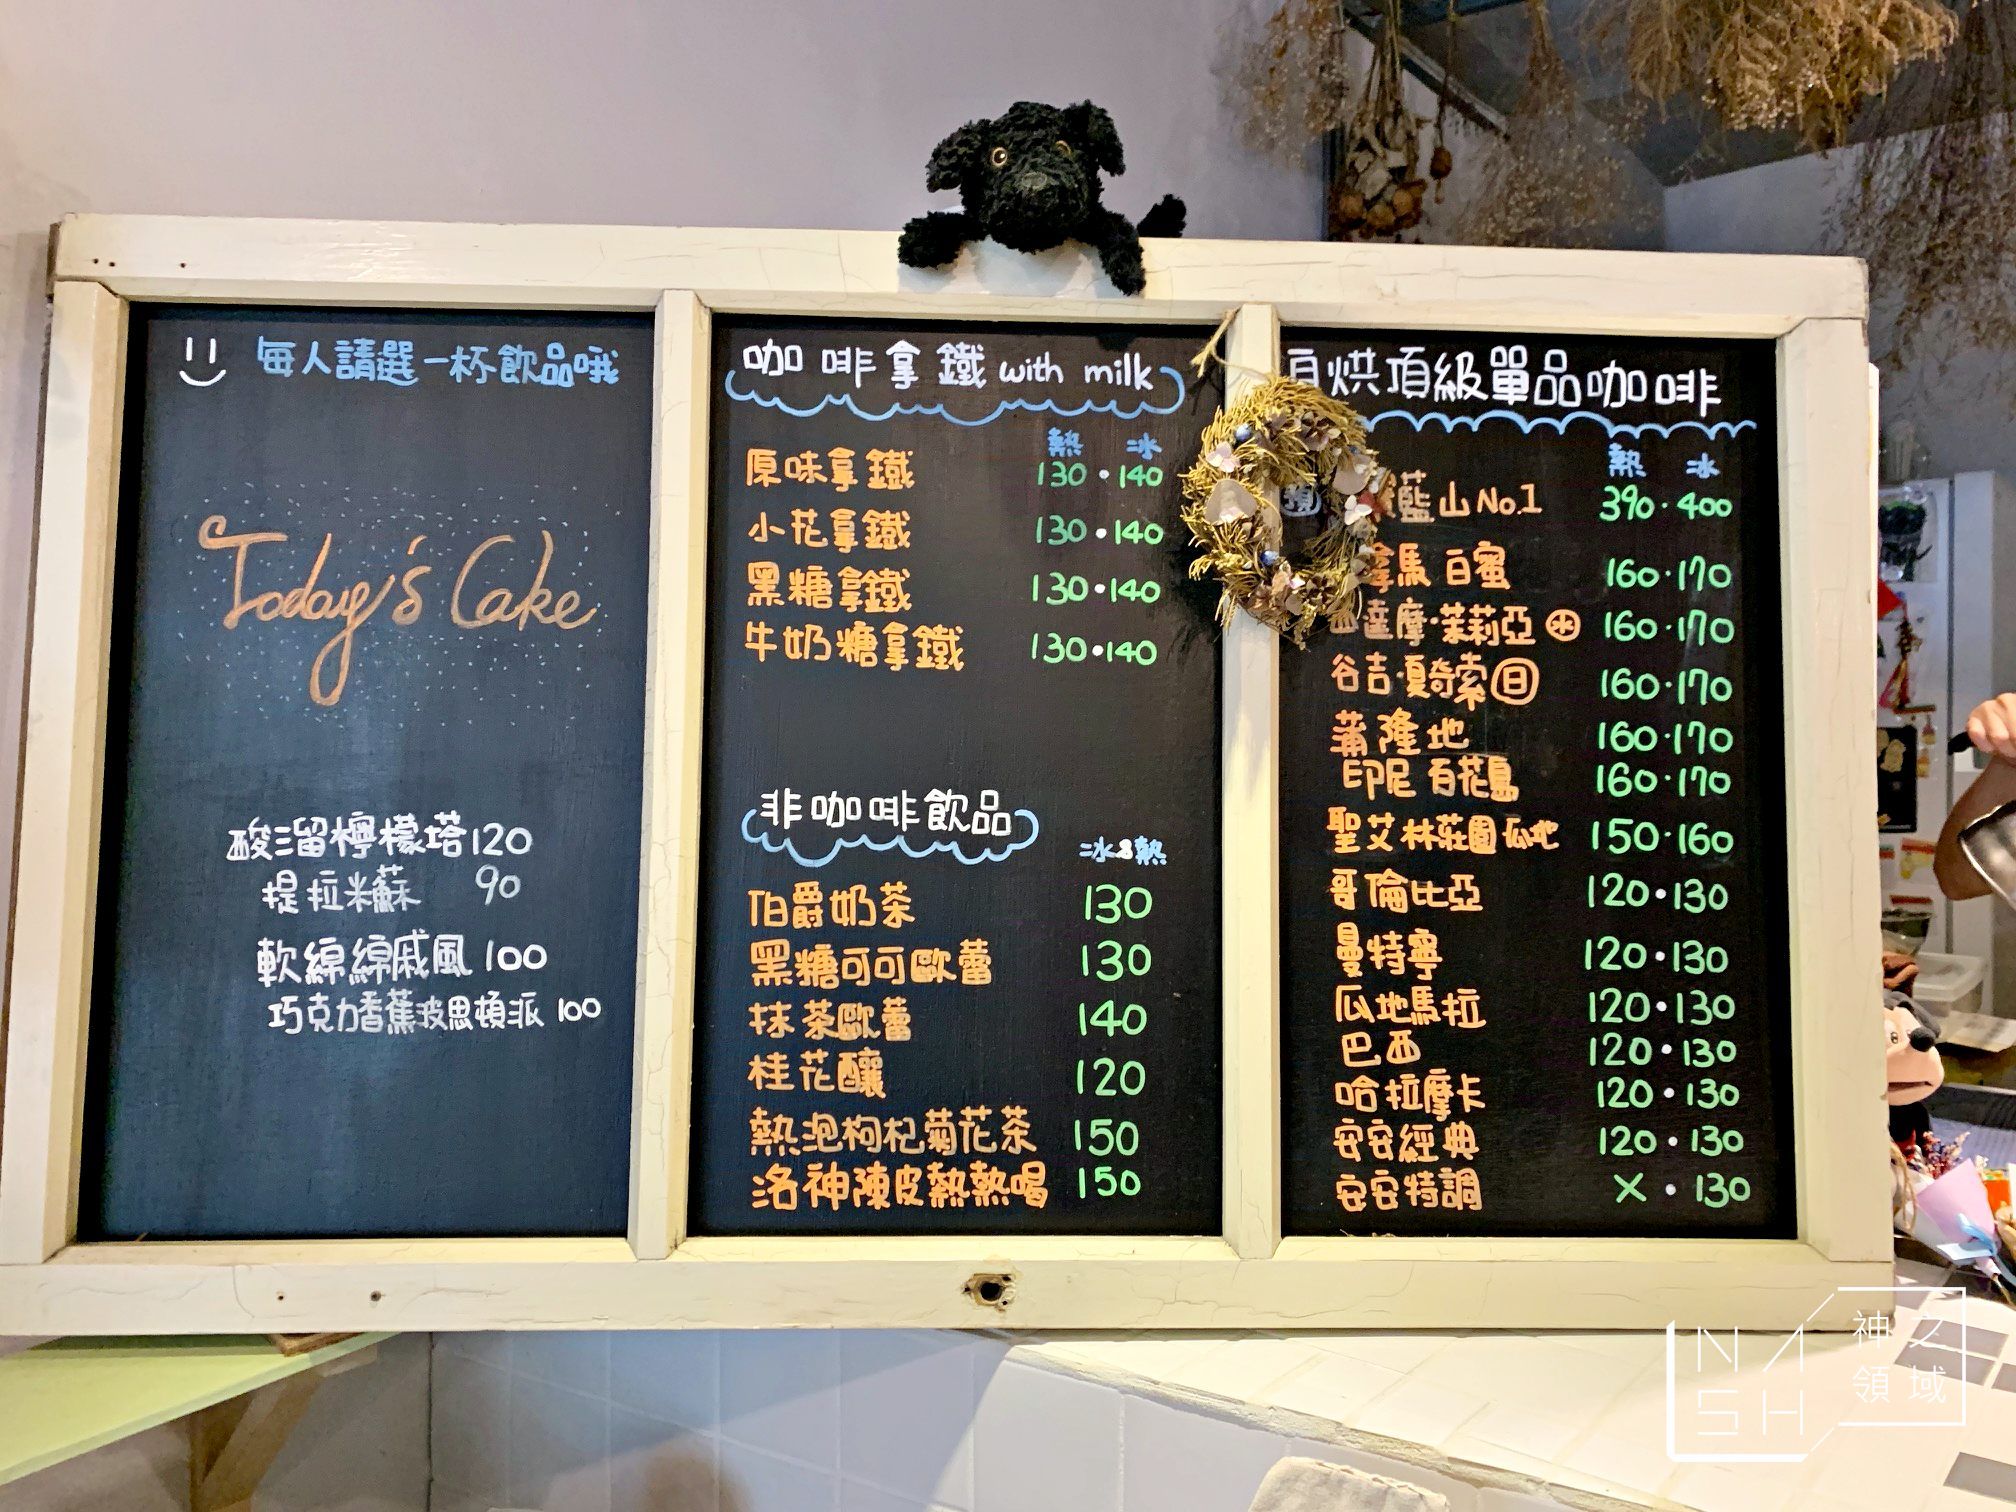 每人請選一杯飲品哦
Today's Cake
酸溜檸檬塔 120
提拉米蘇 90
軟綿綿戚風 100
巧克力香蕉波思頓派 100
咖啡拿鐵 with milk
熱 冰
原味拿鐵 130・140
小花拿鐵 130・140
黑糖拿鐵 130・140
牛奶糖拿鐵 130・140
非咖啡飲品
冰&熱
伯爵奶茶 130
黑糖可可歐蕾 130
抹茶歐蕾 140
桂花釀 120
熱泡枸杞菊花茶 150
洛神陳皮熱熱喝 150
烘頂級單品咖啡
熱 冰
藍山No.1 390・400
拿馬 白蜜 160・170
達摩・茉莉亞 水 160・170
谷吉・夏奇索 日 160・170
蒲隆地 160・170
印尼 百花島 160・170
聖艾林莊園 瓜地 150・160
哥倫比亞 120・130
曼特寧 120・130
瓜地馬拉 120・130
巴西 120・130
哈拉摩卡 120・130
安安經典 120・130
安安特調 X・130
NASH 神之領域